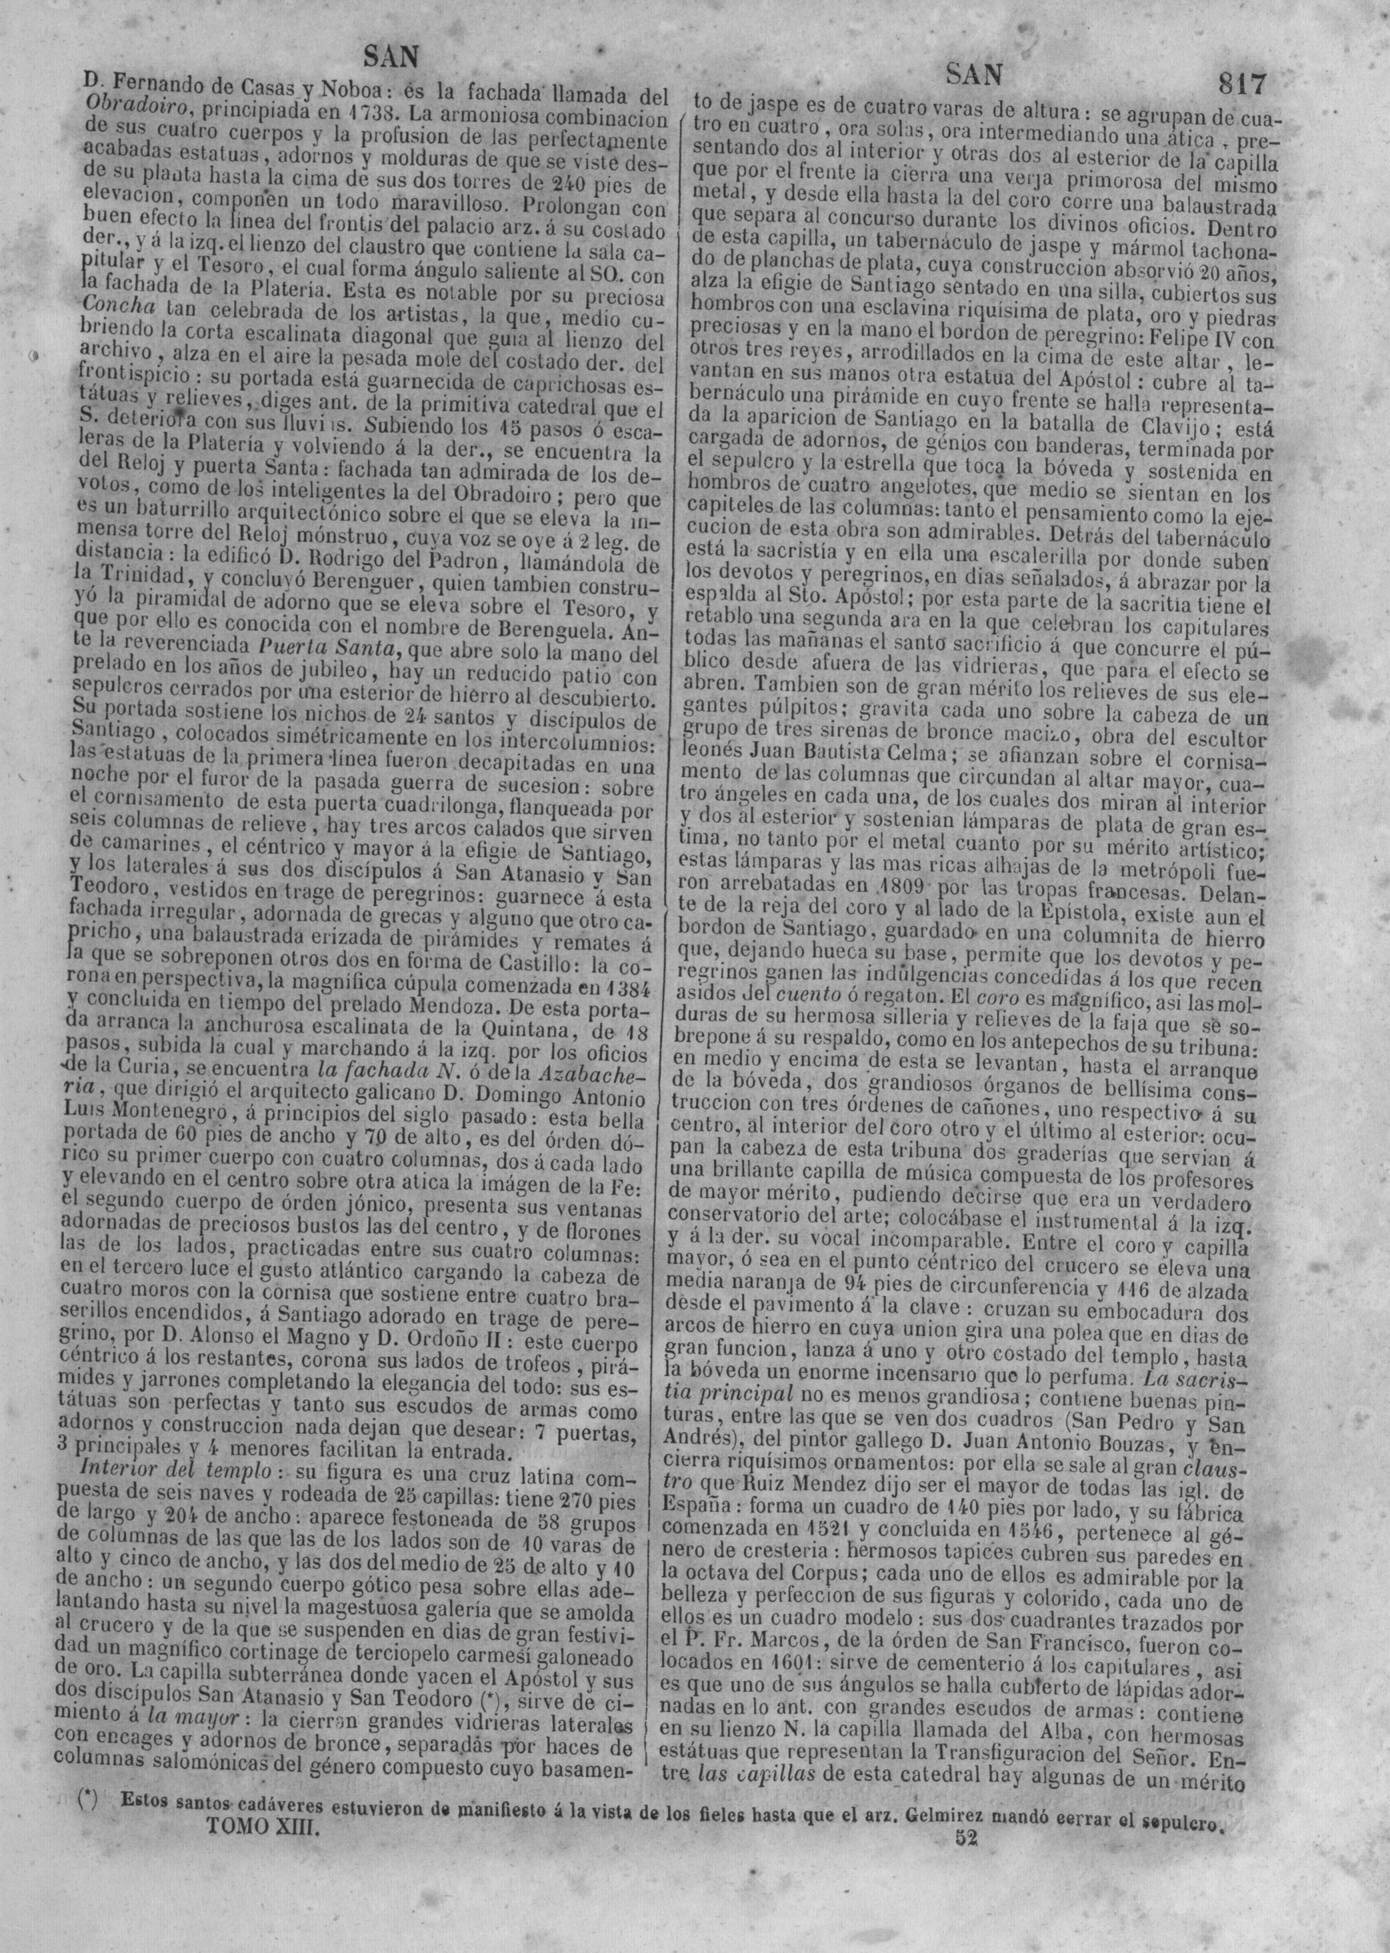 SAN
D. Fernando de Casas y Noboa: és la fachada llamada del
Obradoiro, principiada en 1738. La armoniosa combinacion
de sus cuatro cuerpos y la profusion de las perfectamente
acabadas estatuas, adornos y molduras de que se viste des-
de su planta hasta la cima de sus dos torres de 240 pies de
elevacion, componen un todo maravilloso. Prolongan con
buen efecto la linea del frontis del palacio arz. á su costado
der., y á la izq. el lienzo del claustro que contiene la sala ca-
pitular y el Tesoro, el cual forma ángulo saliente al SO. con
la fachada de la Platería. Esta es notable por su preciosa
Concha tan celebrada de los artistas, la que, medio cu-
briendo la corta escalinata diagonal que guia al lienzo del
archivo, alza en el aire la pesada mole del costado der. del
frontispicio: su portada está guarnecida de caprichosas es-
tátuas y relieves, diges ant. de la primitiva catedral que el
S. deteriora con sus lluvias. Subiendo los 15 pasos ó esca-
leras de la Platería y volviendo á la der., se encuentra la
del Reloj y puerta Santa: fachada tan admirada de los de-
votos, como de los inteligentes la del Obradoiro; pero que
es un baturrillo arquitectónico sobre el que se eleva la in-
mensa torre del Reloj mónstruo, cuya voz se oye á 2 leg. de
distancia: la edificó D. Rodrigo del Padron, llamándola de
la Trinidad, y concluyó Berenguer, quien tambien constru-
yó la piramidal de adorno que se eleva sobre el Tesoro, y
que por ello es conocida con el nombre de Berenguela. An-
te la reverenciada Puerta Santa, que abre solo la mano del
prelado en los años de jubileo, hay un reducido patio con
sepulcros cerrados por una esterior de hierro al descubierto.
Su portada sostiene los nichos de 24 santos y discípulos de
Santiago, colocados simétricamente en los intercolumnios:
las estatuas de la primera linea fueron decapitadas en una
noche por el furor de la pasada guerra de sucesion: sobre
el cornisamento de esta puerta cuadrilonga, flanqueada por
seis columnas de relieve, hay tres arcos calados que sirven
de camarines, el céntrico y mayor á la efigie de Santiago,
y los laterales á sus dos discípulos á San Atanasio y San
Teodoro, vestidos en trage de peregrinos: guarnece á esta
fachada irregular, adornada de grecas y alguno que otro ca-
pricho, una balaustrada erizada de pirámides y remates á
la que se sobreponen otros dos en forma de Castillo: la co-
rona en perspectiva, la magnífica cúpula comenzada en 1384
y concluida en tiempo del prelado Mendoza. De esta porta-
da arranca la anchurosa escalinata de la Quintana, de 18
pasos, subida la cual y marchando á la izq. por los oficios
de la Curia, se encuentra la fachada N. ó de la Azabache-
ria, que dirigió el arquitecto galicano D. Domingo Antonio
Luis Montenegro, á principios del siglo pasado: esta bella
portada de 60 pies de ancho y 70 de alto, es del órden dó-
rico su primer cuerpo con cuatro columnas, dos á cada lado
y elevando en el centro sobre otra atica la imágen de la Fe:
el segundo cuerpo de órden jónico, presenta sus ventanas
adornadas de preciosos bustos las del centro, y de florones
las de los lados, practicadas entre sus cuatro columnas:
en el tercero luce el gusto atlántico cargando la cabeza de
cuatro moros con la cornisa que sostiene entre cuatro bra-
serillos encendidos, á Santiago adorado en trage de pere-
grino, por D. Alonso el Magno y D. Ordoño II: este cuerpo
céntrico á los restantes, corona sus lados de trofeos, pirá-
mides y jarrones completando la elegancia del todo: sus es-
tátuas son perfectas y tanto sus escudos de armas como
adornos y construccion nada dejan que desear: 7 puertas,
3 principales y 4 menores facilitan la entrada.
Interior del templo: su figura es una cruz latina com-
puesta de seis naves y rodeada de 25 capillas: tiene 270 pies
de largo y 204 de ancho: aparece festoneada de 58 grupos
de columnas de las que las de los lados son de 10 varas de
alto y cinco de ancho, y las dos del medio de 25 de alto y 10
de ancho: un segundo cuerpo gótico pesa sobre ellas ade-
lantando hasta su nivel la magestuosa galería que se amolda
al crucero y de la que se suspenden en dias de gran festivi-
dad un magnífico cortinage de terciopelo carmesí galoneado
de oro. La capilla subterránea donde yacen el Apóstol y sus
dos discípulos San Atanasio y San Teodoro (*), sirve de ci-
miento á la mayor: la cierran grandes vidrieras laterales
con encages y adornos de bronce, separadas por haces de
columnas salomónicas del género compuesto cuyo basamen-
SAN 817
to de jaspe es de cuatro varas de altura: se agrupan de cua-
tro en cuatro, ora solas, ora intermediando una ática, pre-
sentando dos al interior y otras dos al esterior de la capilla
que por el frente la cierra una verja primorosa del mismo
metal, y desde ella hasta la del coro corre una balaustrada
que separa al concurso durante los divinos oficios. Dentro
de esta capilla, un tabernáculo de jaspe y mármol tachona-
do de planchas de plata, cuya construccion absorvió 20 años,
alza la efigie de Santiago sentado en una silla, cubiertos sus
hombros con una esclavina riquísima de plata, oro y piedras
preciosas y en la mano el bordon de peregrino: Felipe IV con
otros tres reyes, arrodillados en la cima de este altar, le-
vantan en sus manos otra estatua del Apóstol: cubre al ta-
bernáculo una pirámide en cuyo frente se halla representa-
da la aparicion de Santiago en la batalla de Clavijo; está
cargada de adornos, de génios con banderas, terminada por
el sepulcro y la estrella que toca la bóveda y sostenida en
hombros de cuatro angelotes, que medio se sientan en los
capiteles de las columnas: tanto el pensamiento como la eje-
cucion de esta obra son admirables. Detrás del tabernáculo
está la sacristía y en ella una escalerilla por donde suben
los devotos y peregrinos, en dias señalados, á abrazar por la
espalda al Sto. Apóstol; por esta parte de la sacritia tiene el
retablo una segunda ara en la que celebran los capitulares
todas las mañanas el santo sacrificio á que concurre el pú-
blico desde afuera de las vidrieras, que para el efecto se
abren. Tambien son de gran mérito los relieves de sus ele-
gantes púlpitos; gravita cada uno sobre la cabeza de un
grupo de tres sirenas de bronce macizo, obra del escultor
leonés Juan Bautista Celma; se afianzan sobre el cornisa-
mento de las columnas que circundan al altar mayor, cua-
tro ángeles en cada una, de los cuales dos miran al interior
y dos al esterior y sostenian lámparas de plata de gran es-
tima, no tanto por el metal cuanto por su mérito artístico;
estas lámparas y las mas ricas alhajas de la metrópoli fue-
ron arrebatadas en 1809 por las tropas francesas. Delan-
te de la reja del coro y al lado de la Epístola, existe aun el
bordon de Santiago, guardado en una columnita de hierro
que, dejando hueca su base, permite que los devotos y pe-
regrinos ganen las indulgencias concedidas á los que recen
asidos del cuento ó regaton. El coro es magnífico, asi las mol-
duras de su hermosa silleria y relieves de la faja que se so-
brepone á su respaldo, como en los antepechos de su tribuna:
en medio y encima de esta se levantan, hasta el arranque
de la bóveda, dos grandiosos órganos de bellísima cons-
truccion con tres órdenes de cañones, uno respectivo á su
centro, al interior del coro otro y el último al esterior: ocu-
pan la cabeza de esta tribuna dos graderías que servian á
una brillante capilla de música compuesta de los profesores
de mayor mérito, pudiendo decirse que era un verdadero
conservatorio del arte; colocábase el instrumental á la izq.
y á la der. su vocal incomparable. Entre el coro y capilla
mayor, ó sea en el punto céntrico del crucero se eleva una
media naranja de 94 pies de circunferencia y 116 de alzada
desde el pavimento á la clave: cruzan su embocadura dos
arcos de hierro en cuya union gira una polea que en dias de
gran funcion, lanza á uno y otro costado del templo, hasta
la bóveda un enorme incensario que lo perfuma. La sacris-
tia principal no es menos grandiosa; contiene buenas pin-
turas, entre las que se ven dos cuadros (San Pedro y San
Andrés), del pintor gallego D. Juan Antonio Bouzas, y en-
cierra riquísimos ornamentos: por ella se sale al gran claus-
tro que Ruiz Mendez dijo ser el mayor de todas las igl. de
España: forma un cuadro de 140 pies por lado, y su fábrica
comenzada en 1521 y concluida en 1546, pertenece al gé-
nero de cresteria: hermosos tapices cubren sus paredes en
la octava del Corpus; cada uno de ellos es admirable por la
belleza y perfeccion de sus figuras y colorido, cada uno de
ellos es un cuadro modelo: sus dos cuadrantes trazados por
el P. Fr. Marcos, de la órden de San Francisco, fueron co-
locados en 1601: sirve de cementerio á los capitulares, asi
es que uno de sus ángulos se halla cubierto de lápidas ador-
nadas en lo ant. con grandes escudos de armas: contiene
en su lienzo N. la capilla llamada del Alba, con hermosas
estátuas que representan la Transfiguracion del Señor. En-
tre las capillas de esta catedral hay algunas de un mérito
(*) Estos santos cadáveres estuvieron de manifiesto á la vista de los fieles hasta que el arz. Gelmirez mandó cerrar el sepulcro.
TOMO XIII. 52